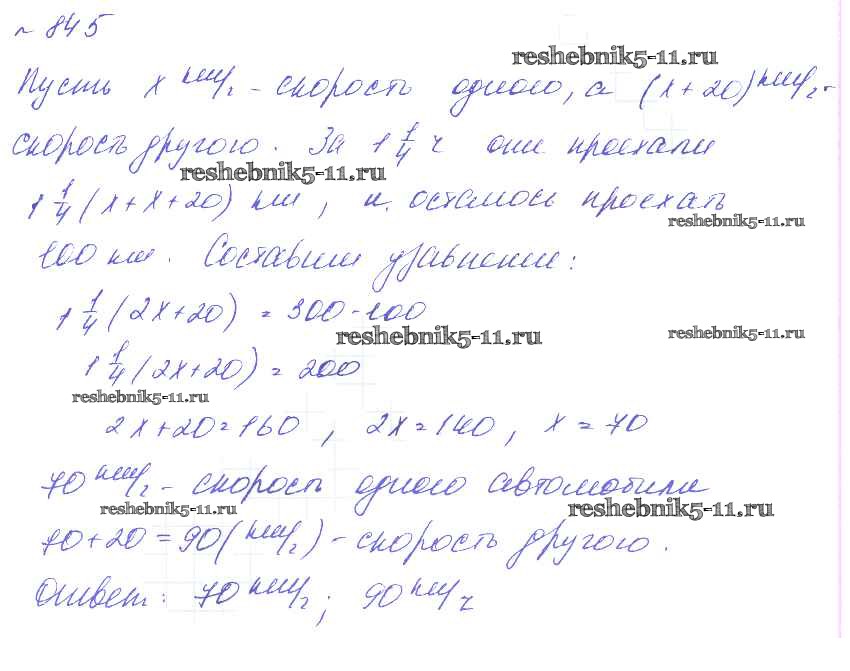 № 845
reshebnik5-11.ru
Пусть x км/ч - скорость одного, а (x+20) км/ч -
скорость другого. За 1 1/4 ч они проехали
reshebnik5-11.ru
1 1/4 (x+x+20) км, и осталось проехать
reshebnik5-11.ru
100 км. Составим уравнение:
1 1/4 (2x+20) = 300-100
reshebnik5-11.ru
reshebnik5-11.ru
1 1/4 (2x+20) = 200
reshebnik5-11.ru
2x+20=160, 2x=140, x=70
70 км/ч - скорость одного автомобиля
reshebnik5-11.ru
reshebnik5-11.ru
70+20=90(км/ч) - скорость другого.
Ответ: 70 км/ч; 90 км/ч